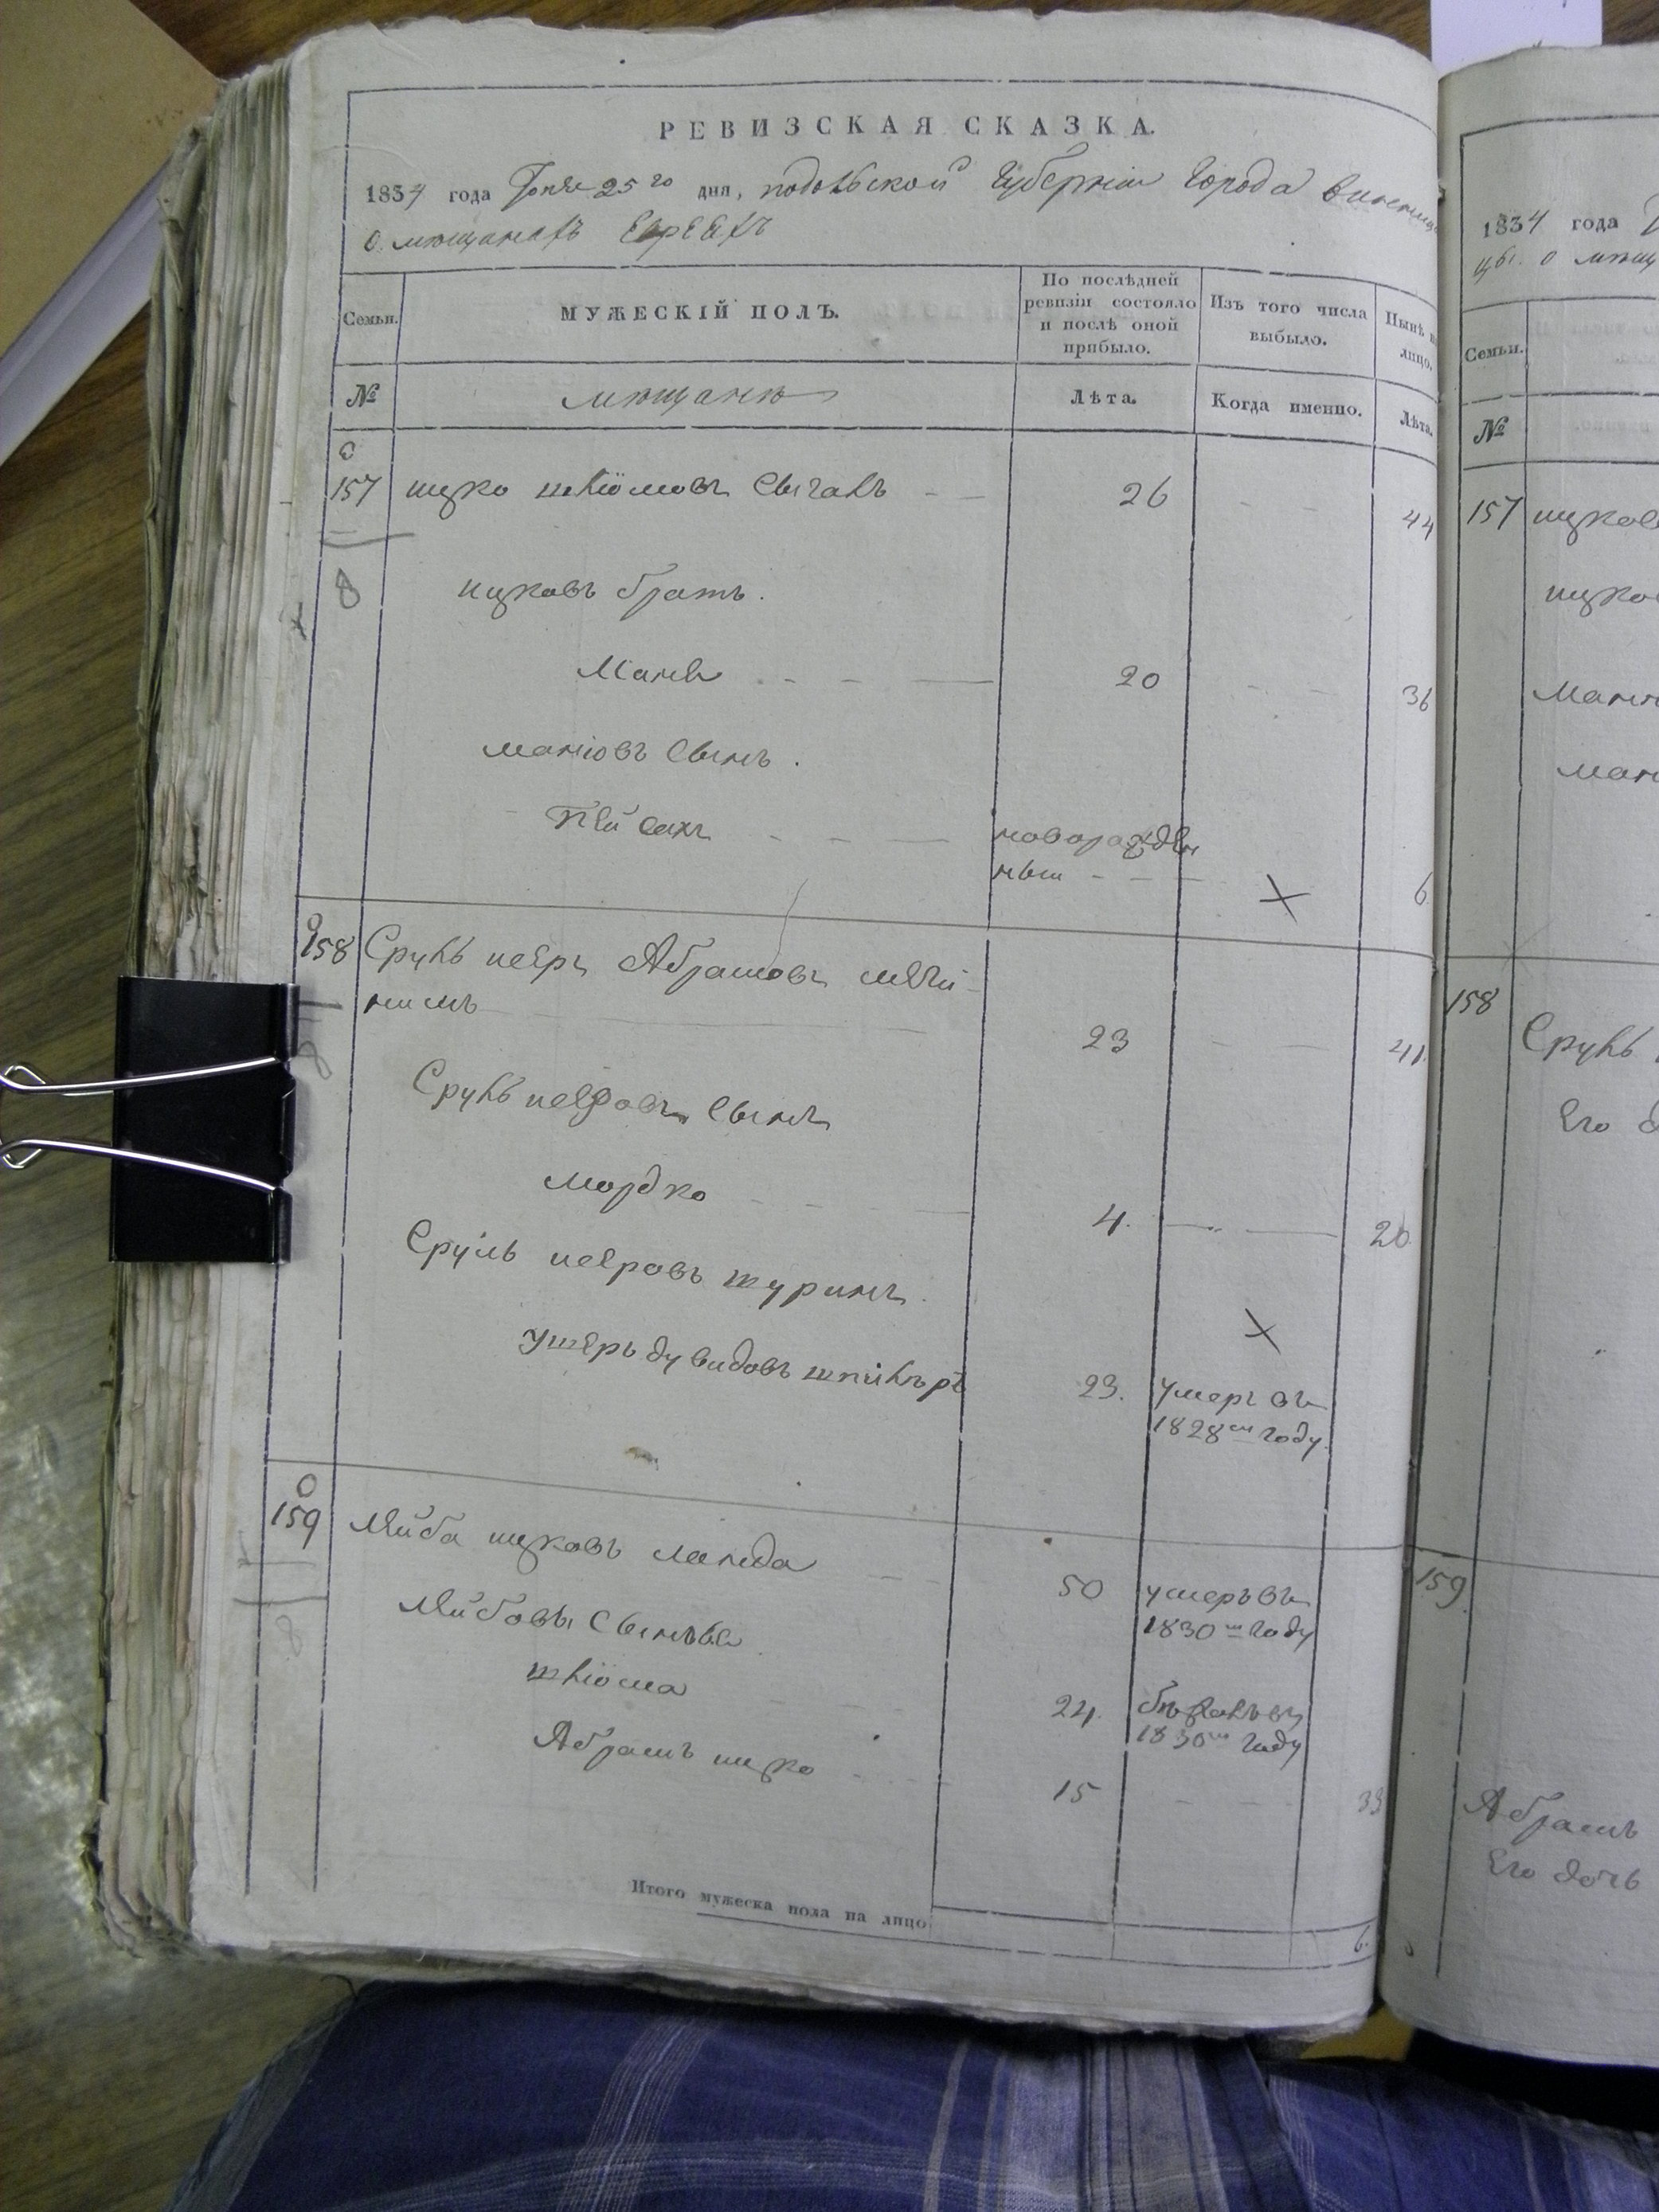 РЕВИЗСКАЯ СКАЗКА.
1834 года 25го дня, подольской Губерніи Города винниц
О мѣщанахъ Евреяхъ
Семьи.
МУЖЕСКІЙ ПОЛЪ.
По послѣдней ревизіи состояло и послѣ оной прибыло.
Изъ того числа выбыло.
Нынѣ на лицо.
№
мѣщане
Лѣта.
Когда именно.
Лѣта.
157 ицко шліомовъ 26 - - 44
8
ицковъ братъ.
Маня - - — 20 - - 36
маніовъ Сынъ.
Пейсахъ - - — новорожден
ныи - - — 6
158 Сруль Абрамовъ
23 - - 41
Сынъ
мордко - - 4. — — 20
Сруль шуринъ.
дувидовъ 23. умеръ въ
1828мъ году.
159 Лейба ицковъ ланда - - 50 умеръ въ
1830м году
Лейбовы Сыновья
шліома - - 24.
1830м году
Абрамъ ицко - - 15 - - 33
Итого мужеска пола на лицо 6.
1834 года
цы. о мѣщ
Семьи.
№
157 ицков
ицко
мани
ман
158
Сруль
Его д
159
Абрамъ
Его дочь